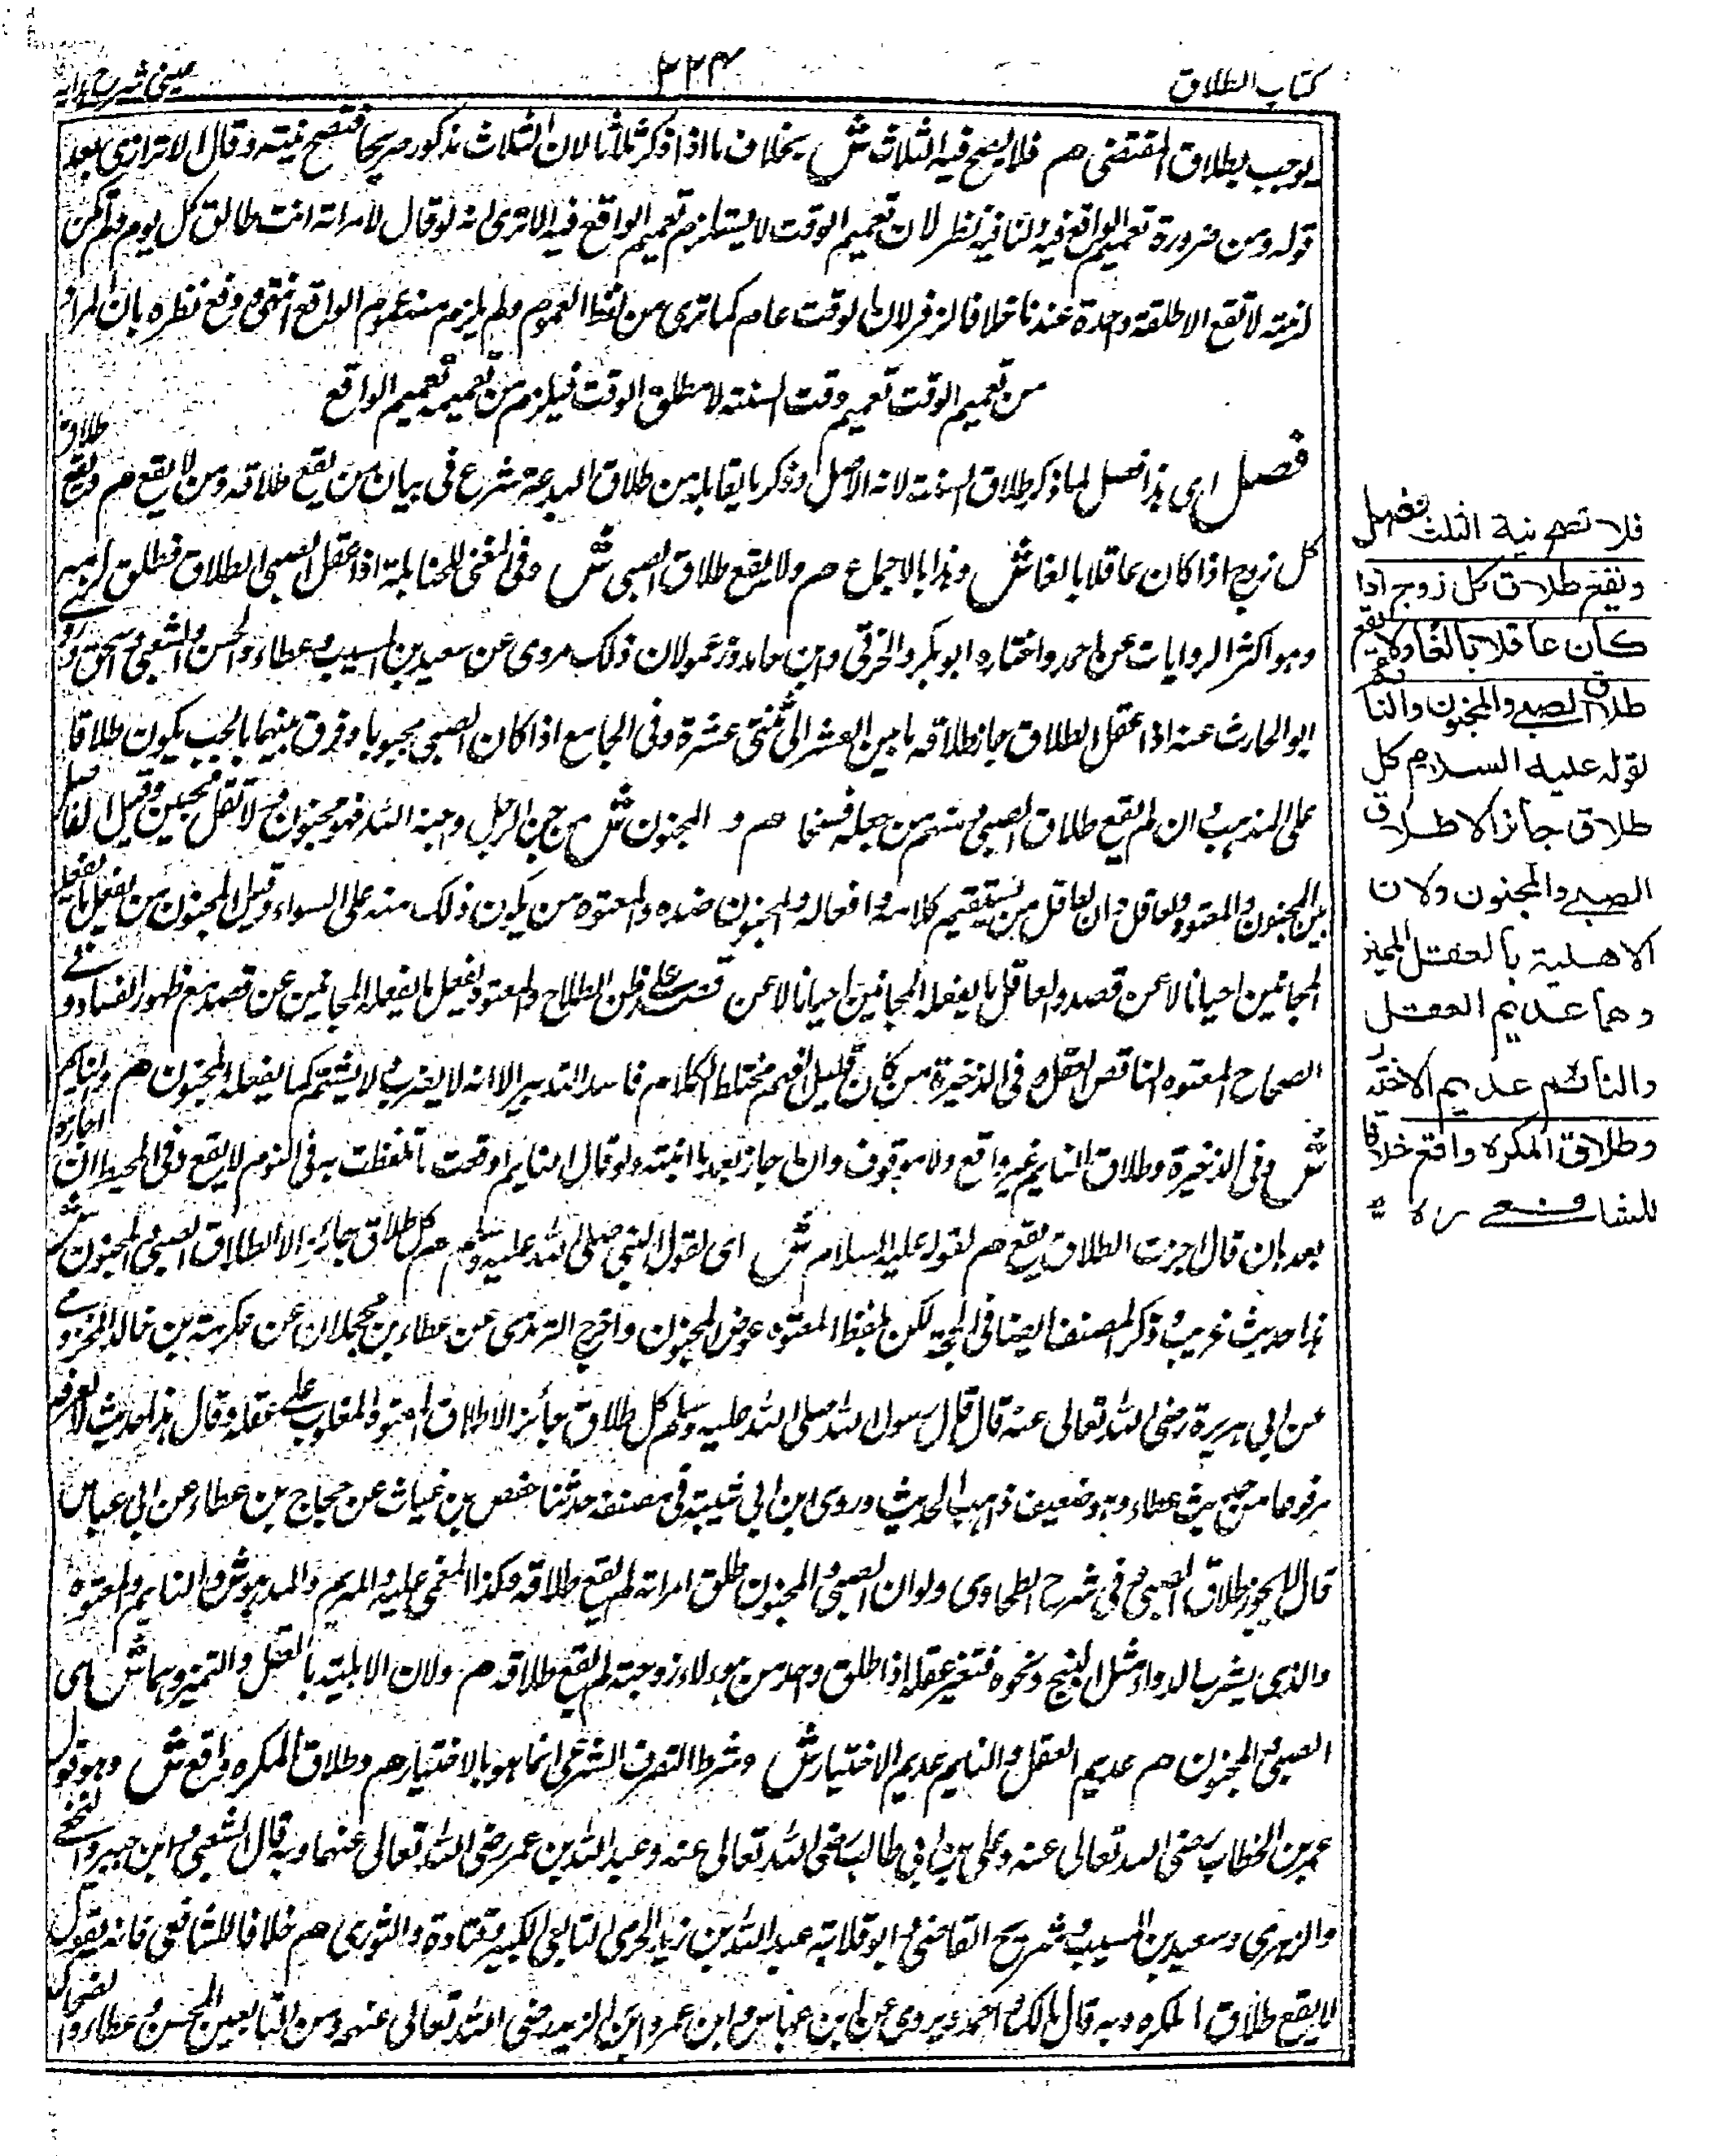 كتاب الطلاق
٣٢٤
عينى شرح هدايه
يوجب بطلاق المقتضى هم فلا يصح فيه الثلاث ش بخلاف ما اذا ذكر ثلاثا لان الثلاث مذكور صريحا فتصح نيته وقال الاترازى بعد
قوله ومن ضرورة تعميم الواقع فيه ولنا فيه نظر لان تعميم الوقت لا يستلزم تعميم الواقع فيه الا ترى انه لو قال لامراته انت طالق كل يوم ولم تكن
له نية لا تقع الا طلقة واحدة عندنا خلافا لزفر لان الوقت عام كما ترى من لفظ العموم ولم يلزم منه عموم الواقع انتهى ودفع نظره بان المراد
من تعميم الوقت تعميم وقت السنة لا مطلق الوقت فيلزم من تعميمه تعميم الواقع
فصل اى هذا فصل لما ذكر طلاق السنة لانه الاصل وذكر ما يقابله من طلاق البدعة شرع فى بيان من يقع طلاقه ومن لا يقع هم ويقع طلاق
كل زوج اذا كان عاقلا بالغا ش وهذا بالاجماع هم ولا يقع طلاق الصبى ش وفى المغنى للحنابلة اذا عقل الصبى الطلاق فطلق لزمه
وهو اكثر الروايات عن احمد واختاره ابو بكر والخرقى وابن حامد وزعموا ان ذلك مروى عن سعيد بن المسيب وعطاء والحسن والشعبى واسحق وروى
ابو الحارث عنه اذا عقل الطلاق جاز طلاقه ما بين العشر الى ثنتى عشرة وفى الجامع اذا كان الصبى مجبوبا وفرق بينهما بالجب يكون طلاقا
على المذهب وان لم يقع طلاق الصبى ومنهم من جعله فسخا هم و المجنون ش من جن الرجل واجنه الله فهو مجنون ولا تقل مجن وقيل الفاصل
بين المجنون والمعتوه والعاقل ان العاقل من يستقيم كلامه وافعاله والمجنون ضده والمعتوه من يكون ذلك منه على السواء وقيل المجنون من يفعل ما يفعله
المجانين احيانا لا عن قصد والعاقل ما يفعله المجانين احيانا لا عن قصد على ظن الصلاح والمعتوه يفعل ما يفعله المجانين عن قصد مع ظهور الفساد وفى
الصحاح المعتوه الناقص العقل وفى الذخيرة من كان قليل الفهم مختلط الكلام فاسد التدبير الا انه لا يضرب ولا يشتم كما يفعله المجنون هم والنايم
ش وفى الذخيرة وطلاق النايم غير واقع ولا موقوف وان اجاز بعد ما انتبه ولو قال النايم اوقعت ما تلفظت به فى النوم لا يقع وفى المحيط ان اجازه
بعد بان قال اجزت الطلاق يقع هم لقوله عليه السلام ش اى لقول النبى صلى الله عليه وسلم هم كل طلاق جائز الا طلاق الصبى والمجنون ش
هذا حديث غريب وذكر المصنف ايضا فى الحجر لكن بلفظ المعتوه عوض المجنون واخرج الترمذى عن عطاء بن عجلان عن عكرمة بن خالد المخزومى
عن ابى هريرة رضى الله تعالى عنه قال قال رسول الله صلى الله عليه وسلم كل طلاق جائز الا طلاق المعتوه المغلوب على عقله وقال هذا حديث لا نعرفه
مرفوعا من حديث عطاء وهو ضعيف ذاهب الحديث وروى ابن ابى شيبة فى مصنفه حدثنا حفص بن غياث عن حجاج بن عطاء عن ابى عباس
قال لا يجوز طلاق الصبى وفى شرح الطحاوى ولو ان الصبى والمجنون طلق امراته لم يقع طلاقه وكذا المغمى عليه والمبرسم والمدهوش والنايم والمعتوه
والذى يشرب الدواء مثل البنج ونحوه فتغير عقله اذا طلق واحد من هولاء زوجته لم يقع طلاقه هم ولان الاهلية بالعقل والتميز وهما ش اى
الصبى والمجنون هم عديم العقل والنايم عديم الاختيار ش وشرط التصرف الشرعى انما هو بالاختيار هم وطلاق المكره واقع ش وهو قول
عمر بن الخطاب رضى الله تعالى عنه وعلى بن ابى طالب رضى الله تعالى عنه وعبد الله بن عمر رضى الله تعالى عنهما وبه قال الشعبى وابن جبير والنخعى
والزهرى وسعيد بن المسيب وشريح القاضى وابو قلابة عبد الله بن زيد الجرمى التابعى الكبير وقتادة والثورى هم خلافا للشافعى فانه يقول
لا يقع طلاق المكره وبه قال مالك واحمد ويروى عن ابن عباس وابن عمر وابن الزبير رضى الله تعالى عنهم ومن التابعين الحسن وعطاء والضحاك
فلا تصح نية الثلث فصل
ويقع طلاق كل زوج اذا
كان عاقلا بالغا ولا يقع
طلاق الصبى والمجنون والنائم
لقوله عليه السلام كل
طلاق جائز الا طلاق
الصبى والمجنون ولان
الاهلية بالعقل المميز
وهما عديم العقل
والنائم عديم الاختيار
وطلاق المكره واقع خلافا
للشافعى ره